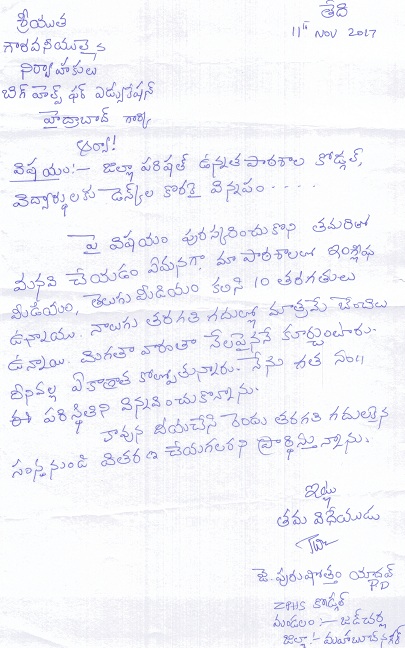 తేది
11th Nov 2017
శ్రీయుత
గౌరవనీయులైన
నిర్వాహకులు
బిగ్ హెల్ప్ ఫర్ ఎడ్యుకేషన్
హైద్రాబాద్ గార్కి
ఆర్యా!
విషయం:- జిల్లా పరిషత్ ఉన్నత పాఠశాల కోడ్గల్,
విద్యార్థులకు డెస్క్‌ల కొరకై విన్నపం - - - -
పై విషయం పురస్కరించుకొని తమరితో
మనవి చేయడం ఏమనగా, మా పాఠశాలలో ఇంగ్లీష్
మీడియం, తెలుగు మీడియం కలిసి 10 తరగతులు
ఉన్నాయి. నాలుగు తరగతి గదుల్లో మాత్రమే బెంచీలు
ఉన్నాయి. మిగతా వారంతా నేలపైననే కూర్చుంటారు.
దీనివల్ల ఏకాగ్రత కోల్పోతున్నారు. నేను గత సం॥
ఈ పరిస్థితిని విన్నవించుకొన్నాను.
కావున దయచేసి రెండు తరగతి గదులకైన
సంస్థ నుండి వితరణ చేయగలరని ప్రార్థిస్తున్నాను.
ఇట్లు
తమ విధేయుడు
జె. పురుషోత్తం యాదవ్
PD
ZPHS కోడ్గల్
మండలం :- జడ్చర్ల
జిల్లా :- మహబూబ్ నగర్